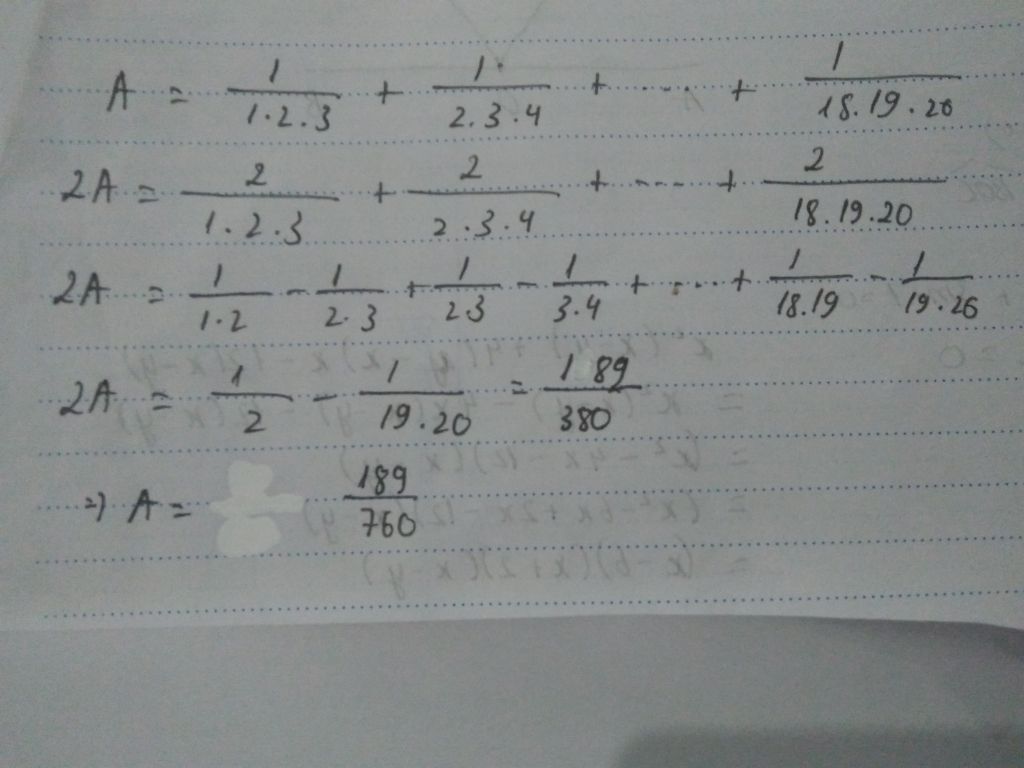 A = 1/1.2.3 + 1/2.3.4 + .... + 1/18.19.20
2A = 2/1.2.3 + 2/2.3.4 + .... + 2/18.19.20
2A = 1/1.2 - 1/2.3 + 1/2.3 - 1/3.4 + .... + 1/18.19 - 1/19.20
2A = 1/2 - 1/19.20 = 189/380
=) A = 189/760